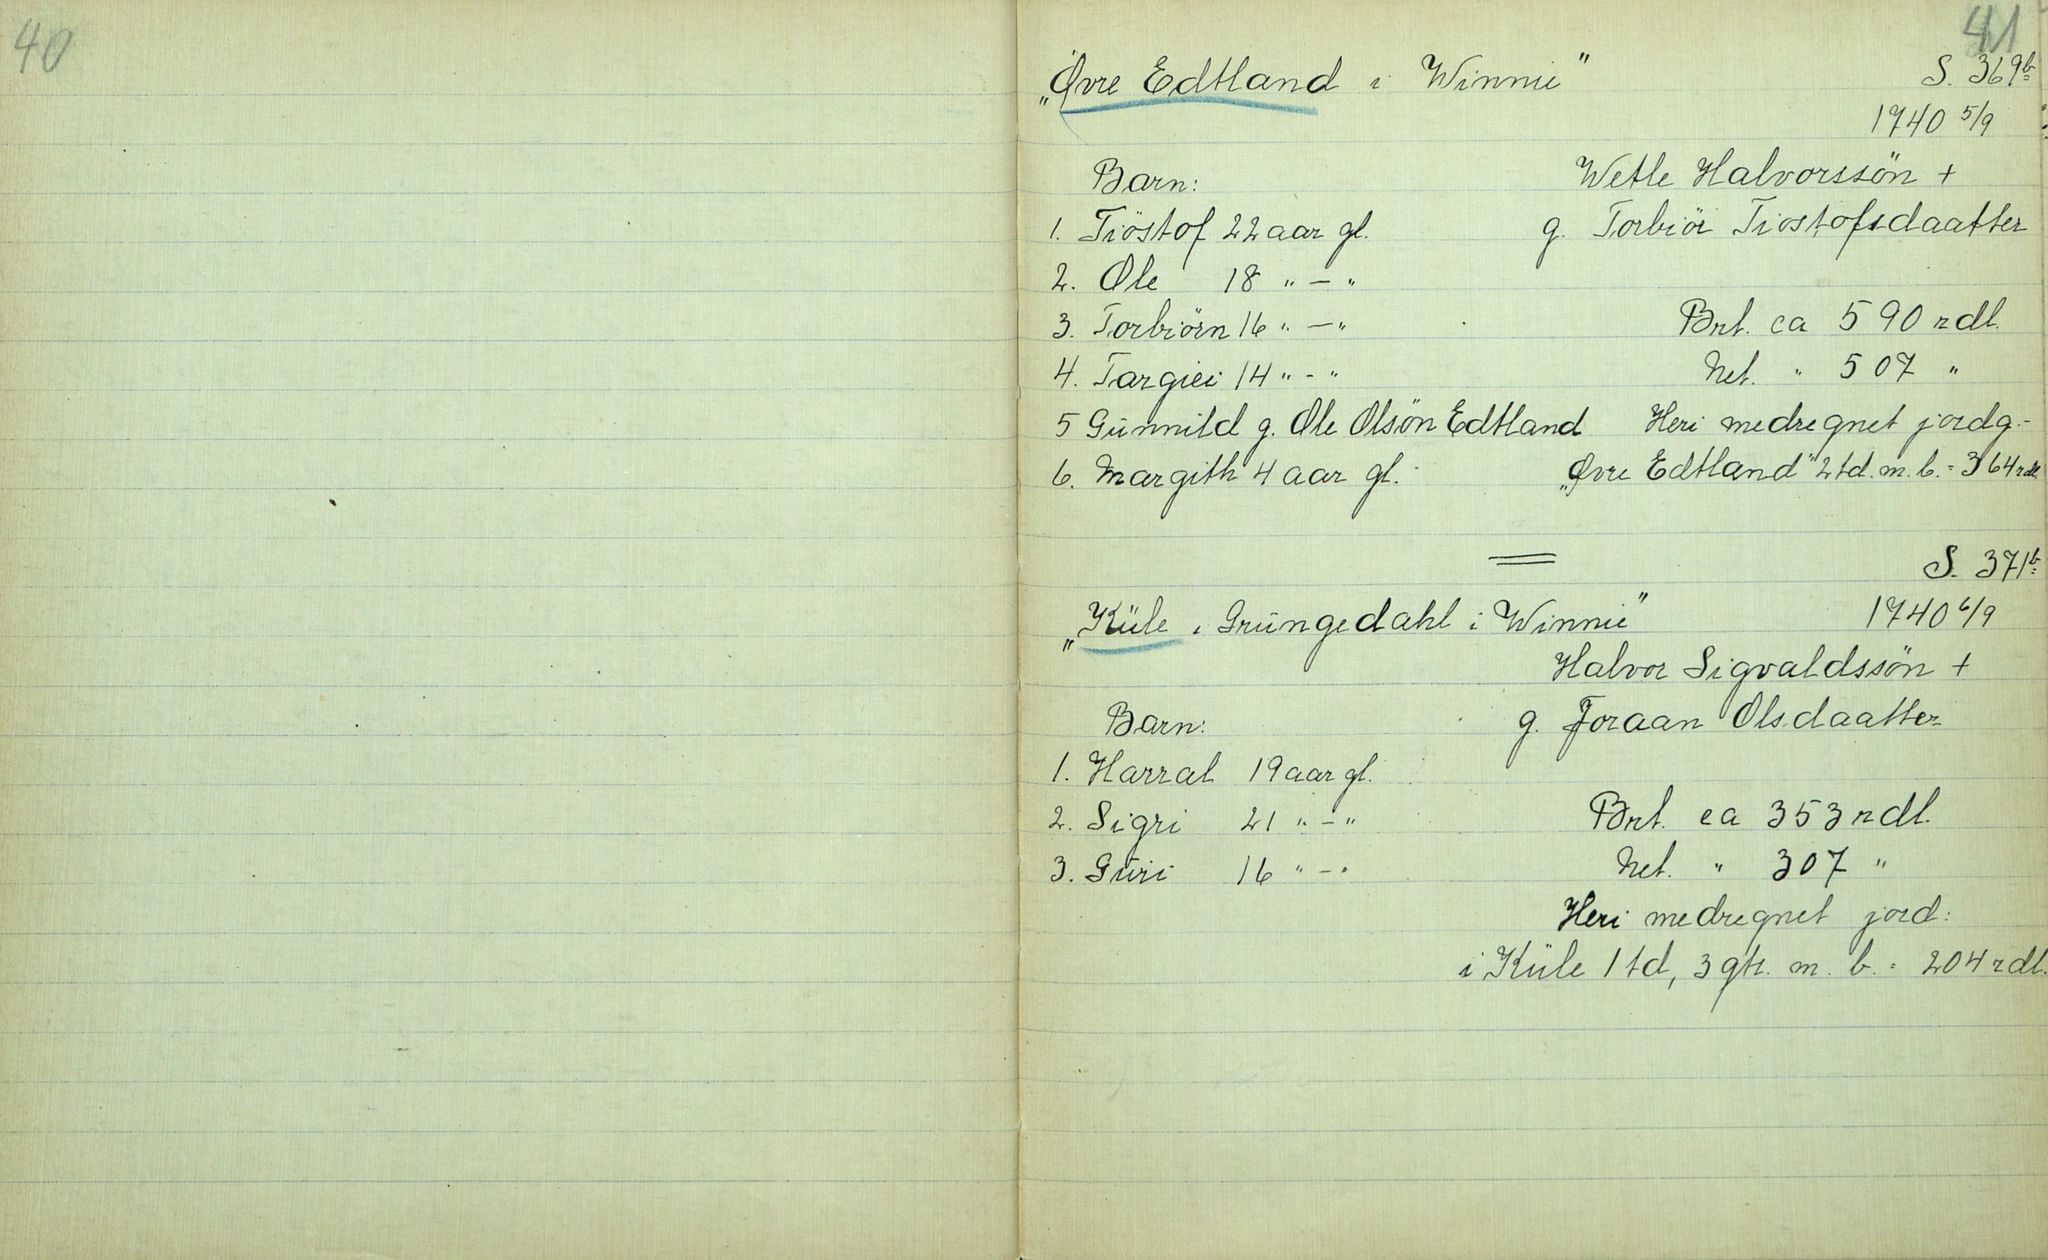 40
41
"Øvre Edtland i Winnie" S. 369b
1740 5/9
Barn: Wetle Halvorssön +
1. Tiöstof 22 aar gl. g. Torbiör Tiostofsdaatter
2. Ole 18 " — "
3. Torbiörn 16 " — " Brt. ca 590 rdl.
4. Targiei 14 " - " Net. " 507 "
5 Gunnild g. Ole Olsön Edtland Heri medregnet jordg.
6. Margith 4 aar gl. "Øvre Edtland" 2 td. m. b. = 364 rdl.
S. 371b
"Küle i Grüngedahl i Winnie" 1740 6/9
Halvor Sigvaldssön +
Barn: g. Joraan Olsdaatter
1. Harral 19 aar gl.
2. Sigri 21 " — " Brt. ca 353 rdl.
3. Guri 16 " — " Net. " 307 "
Heri medregnet jord:
i Küle 1 td, 3 gh. m. b. = 204 rdl.